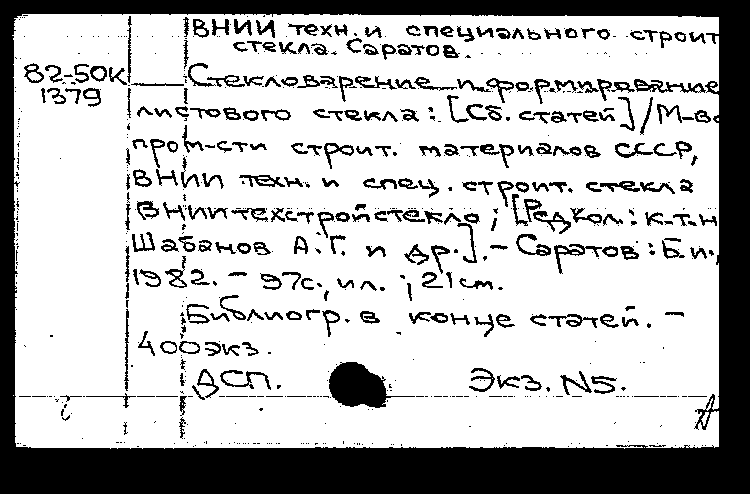 ВНИИ техн. и специального строит
стекла. Саратов.
82-50К
1379
Стекловарение и формирование
листового стекла: [Сб. статей]/М-во
пром-сти строит. материалов СССР,
ВНИИ техн. и спец. строит. стекла
ВНИИтехстройстекло; [Редкол.: к.т.н
Шабанов А.Г. и др.]. – Саратов: Б.и.,
1982. – 97с., ил.; 21см.
Библиогр. в конце статей. –
400экз.
ДСП. Экз. N5.